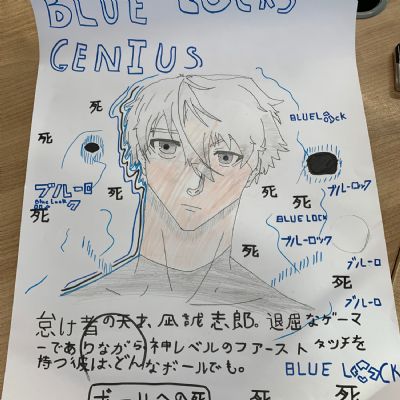 BLUE LOCKS
GENIUS
死
死
死
BLUELOCK
死
死
ブルーロック
Blue Lock
死
死
死
ブルーロック
死
BLUE LOCK
ブルーロック
死
死
ブルーロ
ブルーロ
怠け者の天才、凪誠志郎。退屈なゲーマ
ーでありながら、神レベルのファーストタッチを
持つ彼は、どんなボールでも。
BLUE LOCK
ボールへの死
死
死